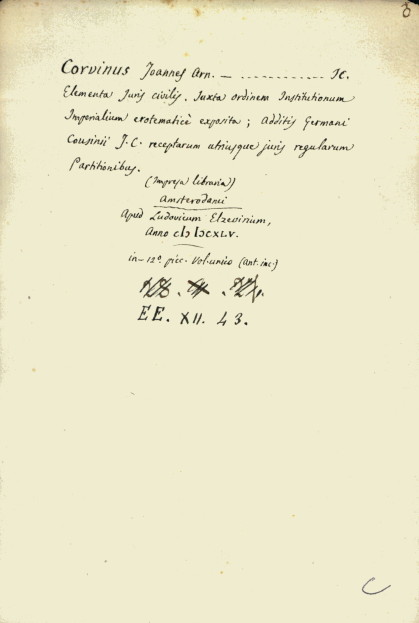 Corvinus Joannes Arn. — ............ JC.
Elementa Juris civilis. Juxta ordinem Institutionum
Imperialium erotematicè exposita; Additis Germani
Cousinii J.C. receptarum utriusque juris regularum
Partitionibus.
(Impresa libraria))
Amsterodami
Apud Ludovicum Elzevirium,
Anno cIɔ IɔcXLV.
in-12º. picc. Vol. unico (Ant. inc.)
EE. XII. 43.
C